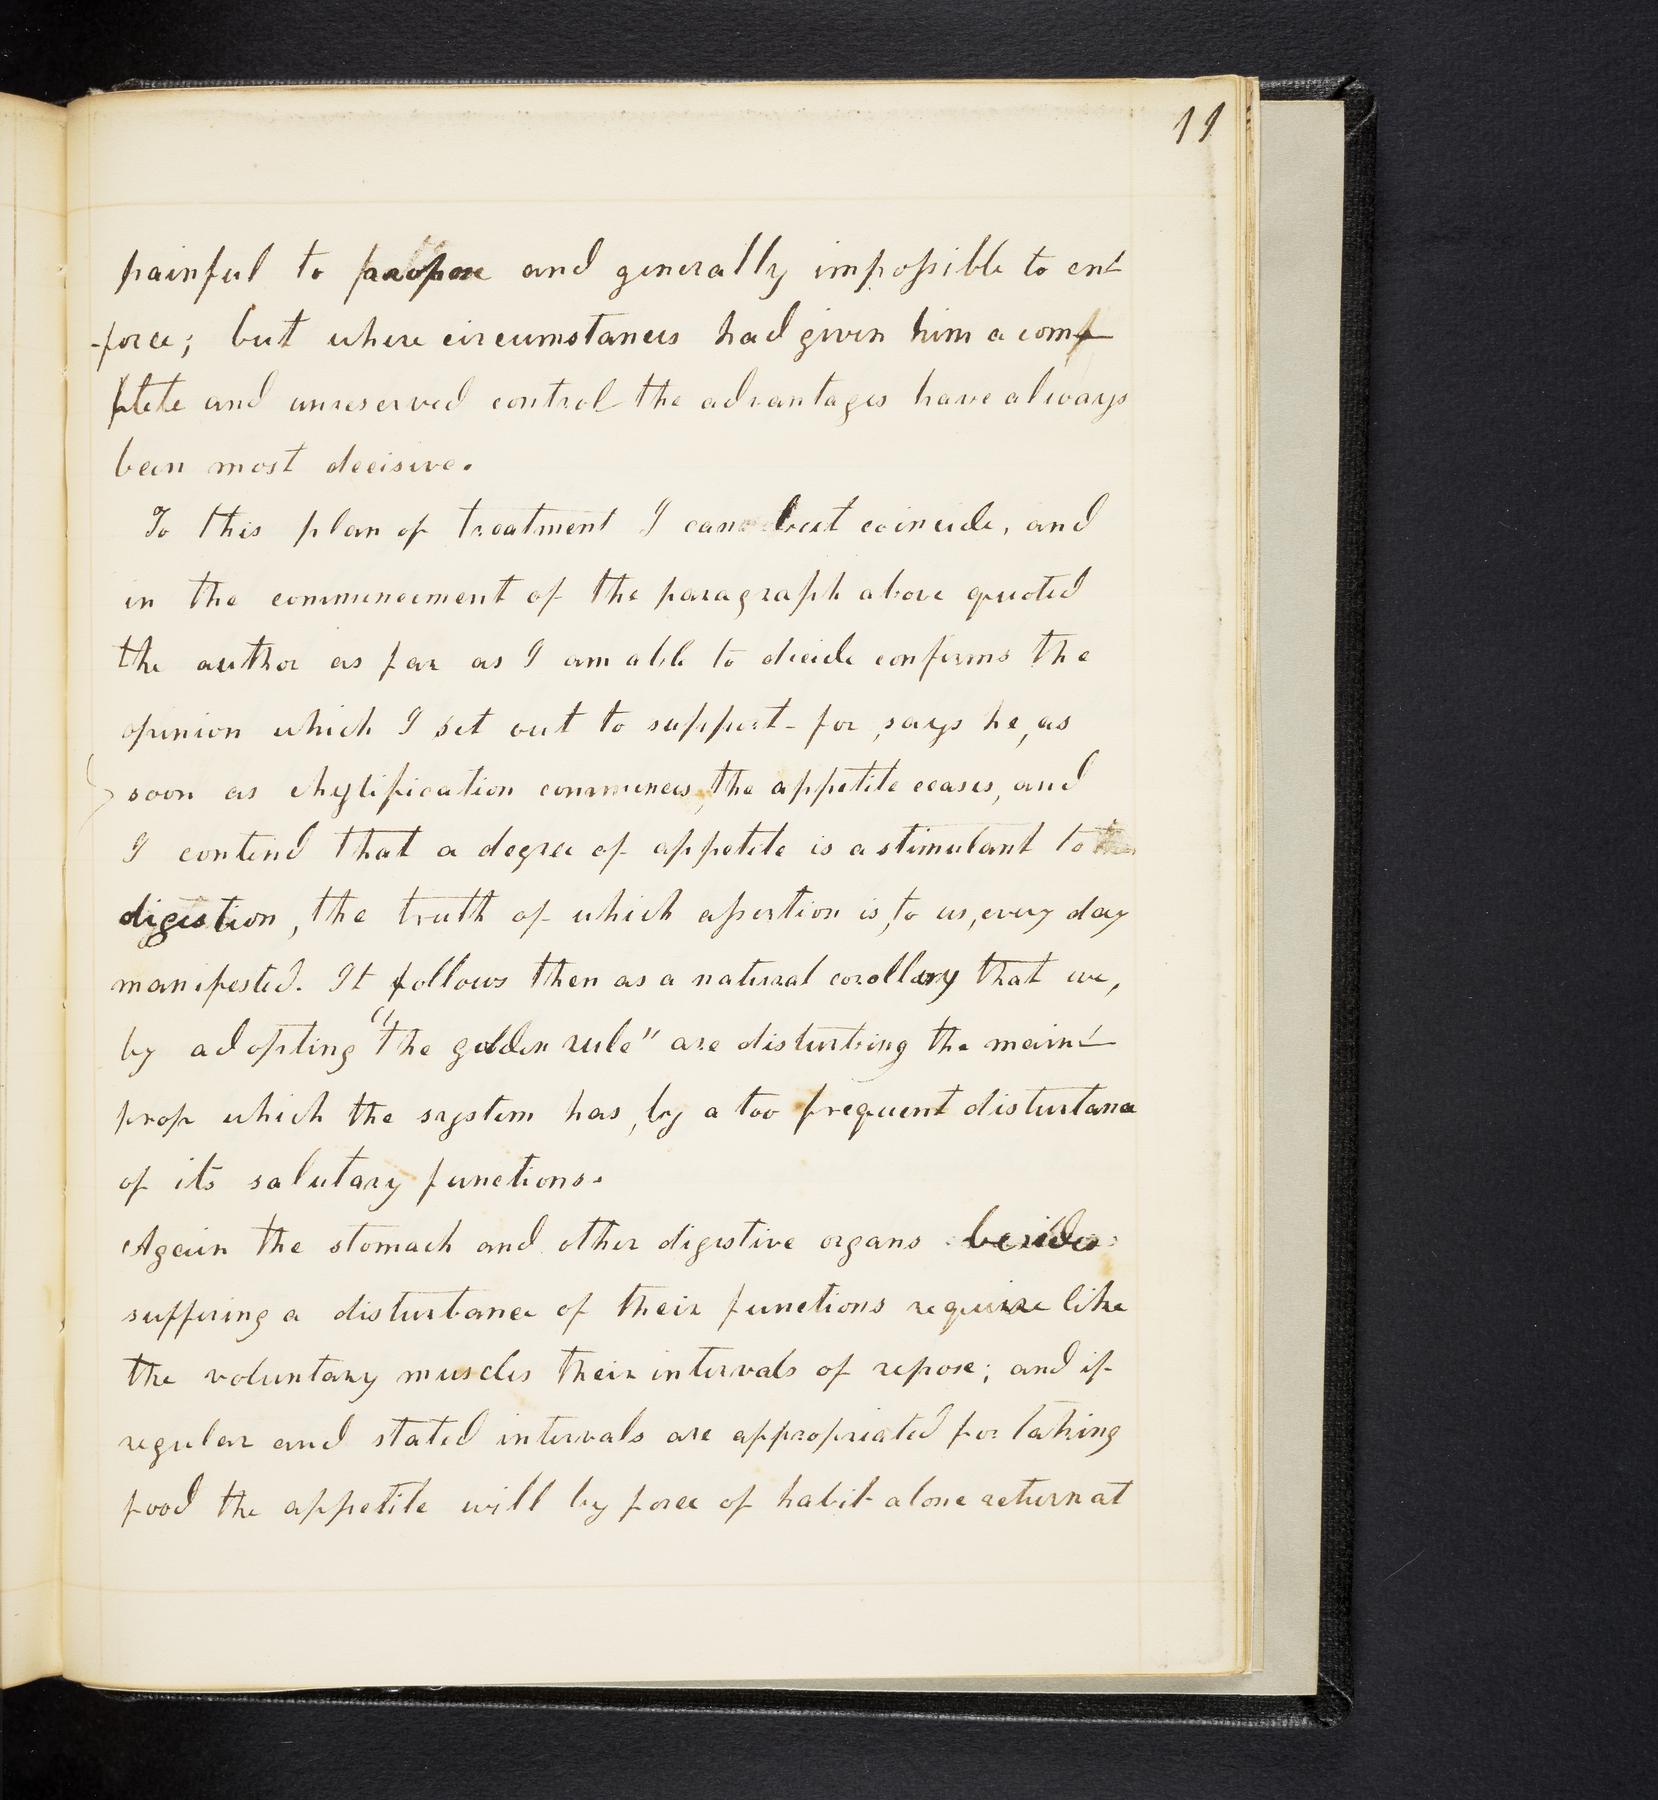 11
painful to propose and generally impossible to en-
-force; but where circumstances had given him a com-
plete and unreserved control the advantages have always
been most decisive.
To this plan of treatment I can but coincide, and
in the commencement of the paragraph above quoted
the author as far as I am able to decide confirms the
opinion which I set out to support - for, says he, as
soon as chylification commences, the appetite ceases, and
I contend that a degree of appetite is a stimulant to
digestion, the truth of which assertion is, to us, every day
manifested. It follows then as a natural corollary that we,
by adopting "the golden rule" are disturbing the main
prop which the system has, by a too frequent disturbance
of its salutary functions.
Again the stomach and other digestive organs besides
suffering a disturbance of their functions require like
the voluntary muscles their intervals of repose; and if
regular and stated intervals are appropriated for taking
food the appetite will by force of habit alone return at